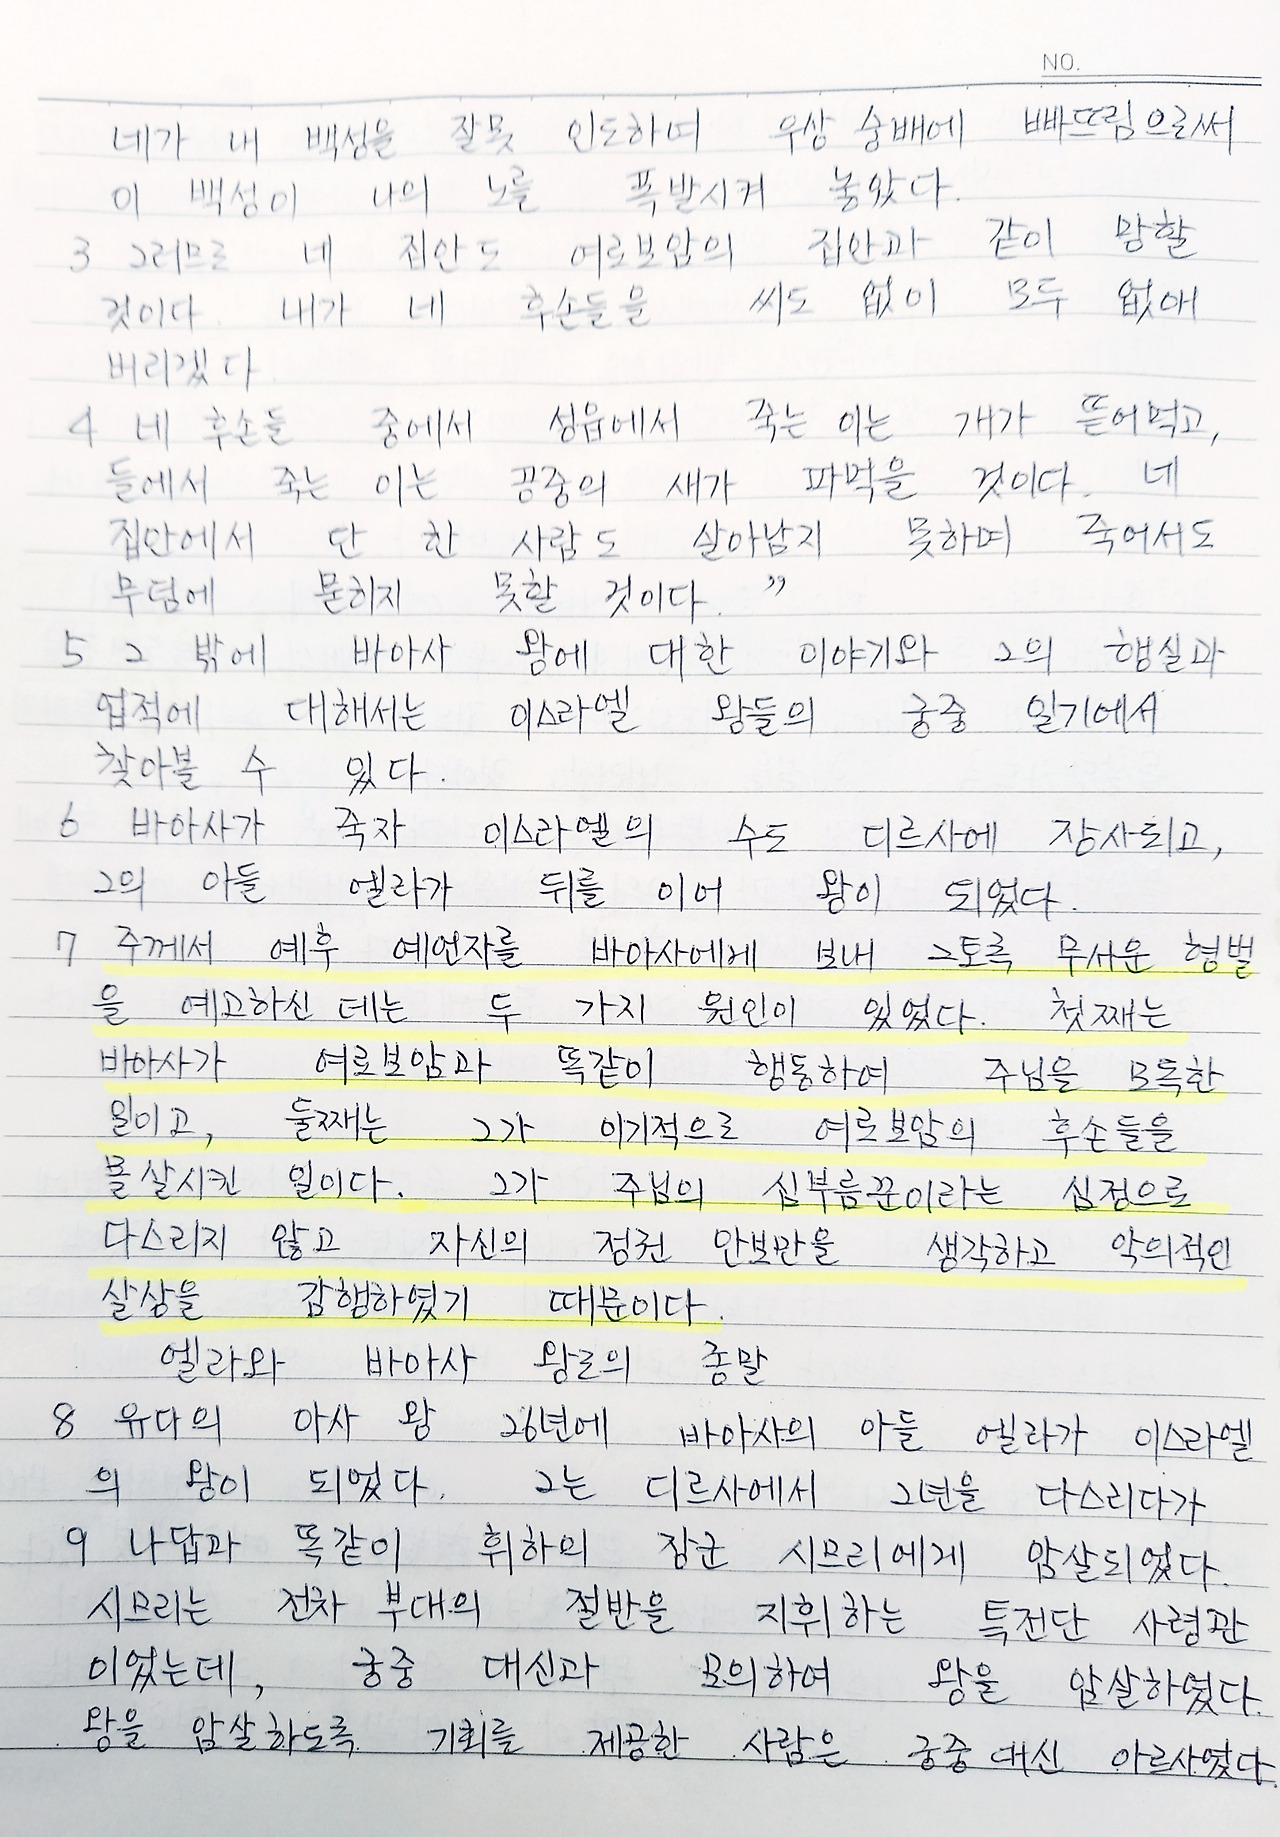 NO.
네가 내 백성을 잘못 인도하며 우상 숭배에 빠뜨림으로써
이 백성이 나의 노를 폭발시켜 놓았다.
3 그러므로 네 집안도 여로보암의 집안과 같이 망할
것이다. 내가 네 후손들을 씨도 없이 모두 없애
버리겠다
4 네 후손들 중에서 성읍에서 죽는 이는 개가 뜯어먹고,
들에서 죽는 이는 공중의 새가 파먹을 것이다. 네
집안에서 단 한 사람도 살아남지 못하며 죽어서도
무덤에 묻히지 못할 것이다."
5 그 밖에 바아사 왕에 대한 이야기와 그의 행실과
업적에 대해서는 이스라엘 왕들의 궁중 일기에서
찾아볼 수 있다.
6 바아사가 죽자 이스라엘의 수도 디르사에 장사되고,
그의 아들 엘라가 뒤를 이어 왕이 되었다.
7 주께서 예후 예언자를 바아사에게 보내 그토록 무서운 형벌
을 예고하신 데는 두 가지 원인이 있었다. 첫째는
바아사가 여로보암과 똑같이 행동하여 주님을 모독한
일이고, 둘째는 그가 이기적으로 여로보암의 후손들을
몰살시킨 일이다. 그가 주님의 심부름꾼이라는 심정으로
다스리지 않고 자신의 정권 안보만을 생각하고 악의적인
살상을 감행하였기 때문이다.
엘라와 바아사 왕로의 종말
8 유다의 아사 왕 26년에 바아사의 아들 엘라가 이스라엘
의 왕이 되었다. 그는 디르사에서 2년을 다스리다가
9 나답과 똑같이 휘하의 장군 시므리에게 암살되었다.
시므리는 전차 부대의 절반을 지휘하는 특전단 사령관
이었는데, 궁중 대신과 모의하여 왕을 암살하였다.
왕을 암살하도록 기회를 제공한 사람은 궁중 대신 아르사였다.